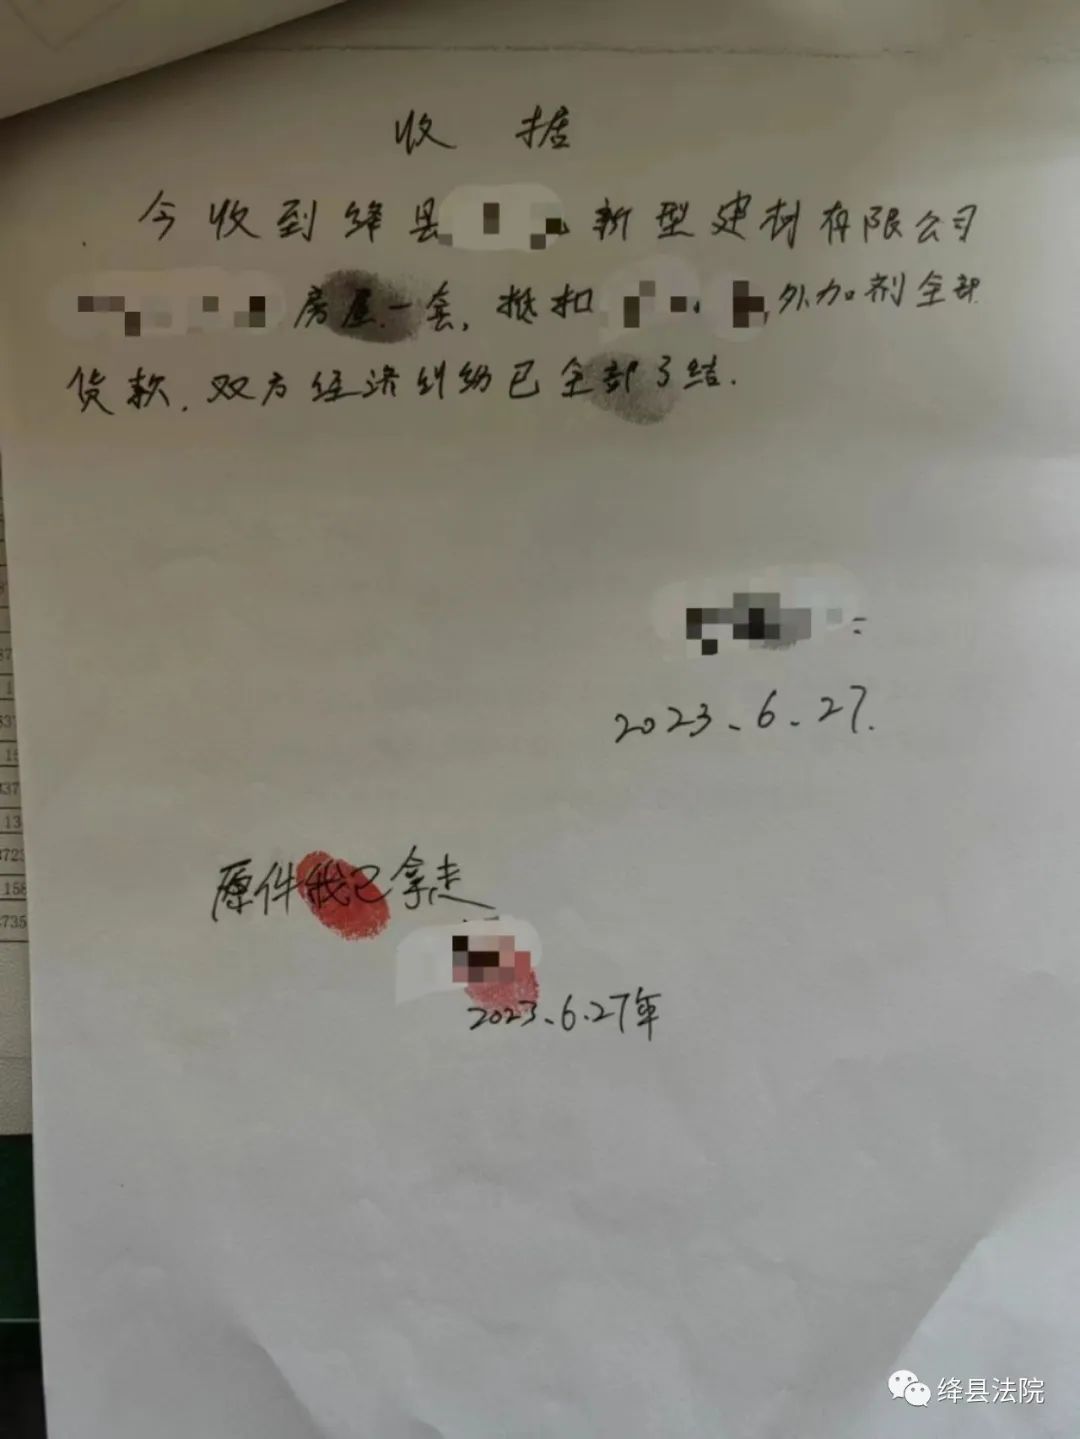 收 据
今收到绛县 新型建材有限公司
房屋一套，抵扣 、 外加剂全部
货款，双方经济纠纷已全部了结.
2023、6、27.
原件我已拿走
2023、6、27年
37
1
537
15
437
13
3723
158
3735
绛县法院